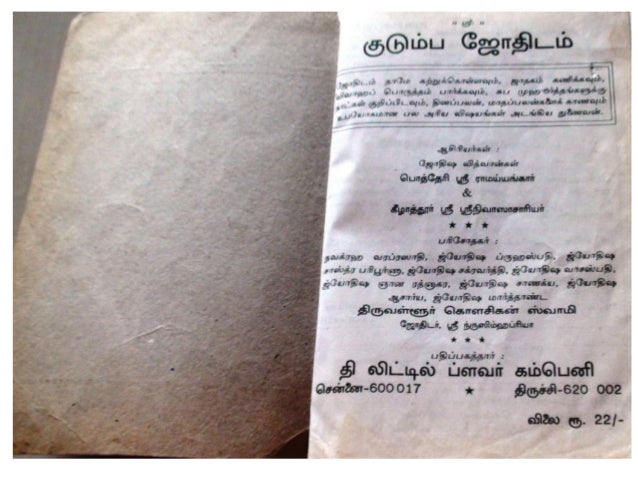 ஸ்ரீ
குடும்ப ஜோதிடம்
ஜோதிடம் தாமே கற்றுக்கொள்ளவும், ஜாதகம் கணிக்கவும்,
விவாஹப் பொருத்தம் பார்க்கவும், சுப முஹூர்த்தங்களுக்கு
நாட்கள் குறிப்பிடவும், தினப்பலன், மாதப்பலன்களைக் காணவும்
உபயோகமான பல அரிய விஷயங்கள் அடங்கிய துணைவன்.
ஆசிரியர்கள் :
ஜோதிஷ வித்வான்கள்
பொத்தேரி ஸ்ரீ ராமய்யங்கார்
&
கீழாத்தூர் ஸ்ரீ ஸ்ரீநிவாஸாசாரியர்
★ ★ ★
பரிசோதகர் :
நவக்ரஹ வரப்ரஸாதி, ஜ்யோதிஷ ப்ருஹஸ்பதி, ஜ்யோதிஷ
சாஸ்த்ர பரிபூர்ணா, ஜ்யோதிஷ சக்ரவர்த்தி, ஜ்யோதிஷ வாசஸ்பதி,
ஜ்யோதிஷ ஞான ரத்னாகர, ஜ்யோதிஷ சாணக்ய, ஜ்யோதிஷ
ஆசார்ய, ஜ்யோதிஷ மார்த்தாண்ட
திருவள்ளூர் கௌசிகன் ஸ்வாமி
ஜோதிடர், ஸ்ரீ ந்ருஸிம்ஹப்ரியா
★ ★ ★
பதிப்பகத்தார் :
தி லிட்டில் ப்ளவர் கம்பெனி
சென்னை-600 017 ★ திருச்சி-620 002
விலை ரூ. 22/-